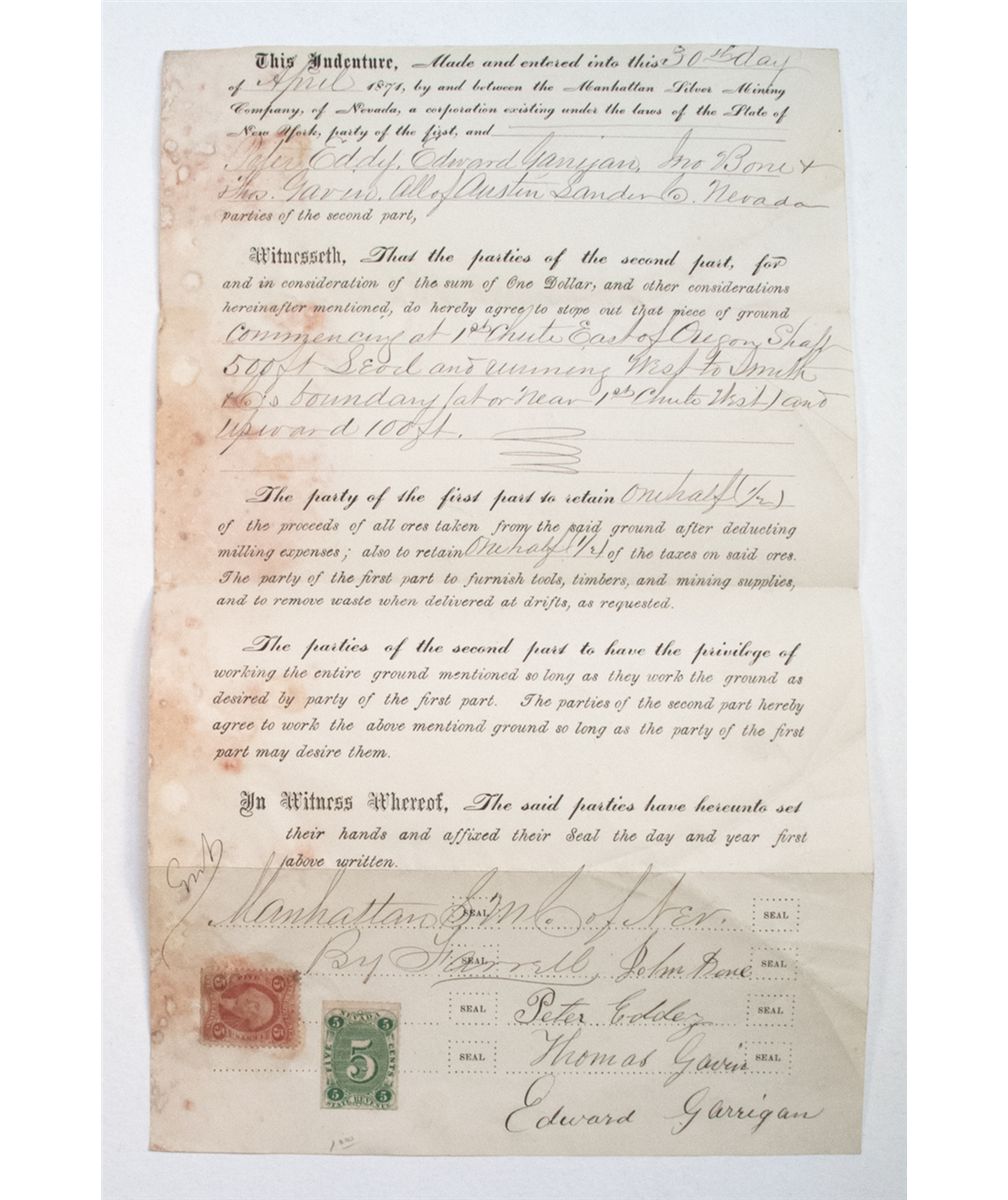 This Indenture, Made and entered into this 30th day
of April 1871, by and between the Manhattan Silver Mining
Company, of Nevada, a corporation existing under the laws of the State of
New York, party of the first, and
Peter Eddy, Edward Garrigan, Jno Bone &
Thos. Gaven. All of Austin Lander Co. Nevada
parties of the second part,
Witnesseth, That the parties of the second part, for
and in consideration of the sum of One Dollar, and other considerations
hereinafter mentioned, do hereby agree to stope out that piece of ground
Commencing at 1st Chute East of Oregon Shaft
500 ft Level and running West to Smith
& Co's boundary (at or near 1st Chute West) and
upward 100 ft.
The party of the first part to retain One half (1/2)
of the proceeds of all ores taken from the said ground after deducting
milling expenses; also to retain One half (1/2) of the taxes on said ores.
The party of the first part to furnish tools, timbers, and mining supplies,
and to remove waste when delivered at drifts, as requested.
The parties of the second part to have the privilege of
working the entire ground mentioned so long as they work the ground as
desired by party of the first part. The parties of the second part hereby
agree to work the above mentiond ground so long as the party of the first
part may desire them.
In Witness Whereof, The said parties have hereunto set
their hands and affixed their Seal the day and year first
above written.
Manhattan S M Co of Nev. SEAL SEAL
By Farrell, SEAL John Bone SEAL
SEAL Peter Eddey SEAL
SEAL Thomas Gavin SEAL
Edward Garrigan
5 FIVE 5
5 5
5 NEVADA 5
FIVE 5 CENTS
5 STATE REVENUE 5